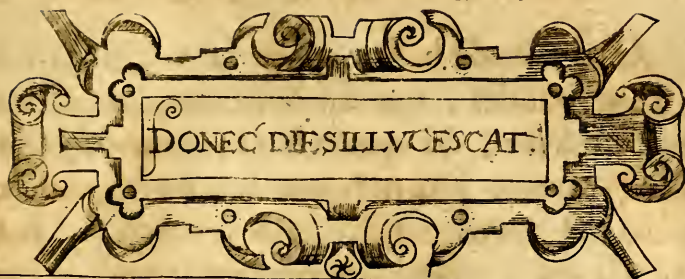 DONEC DIES ILLVCESCAT